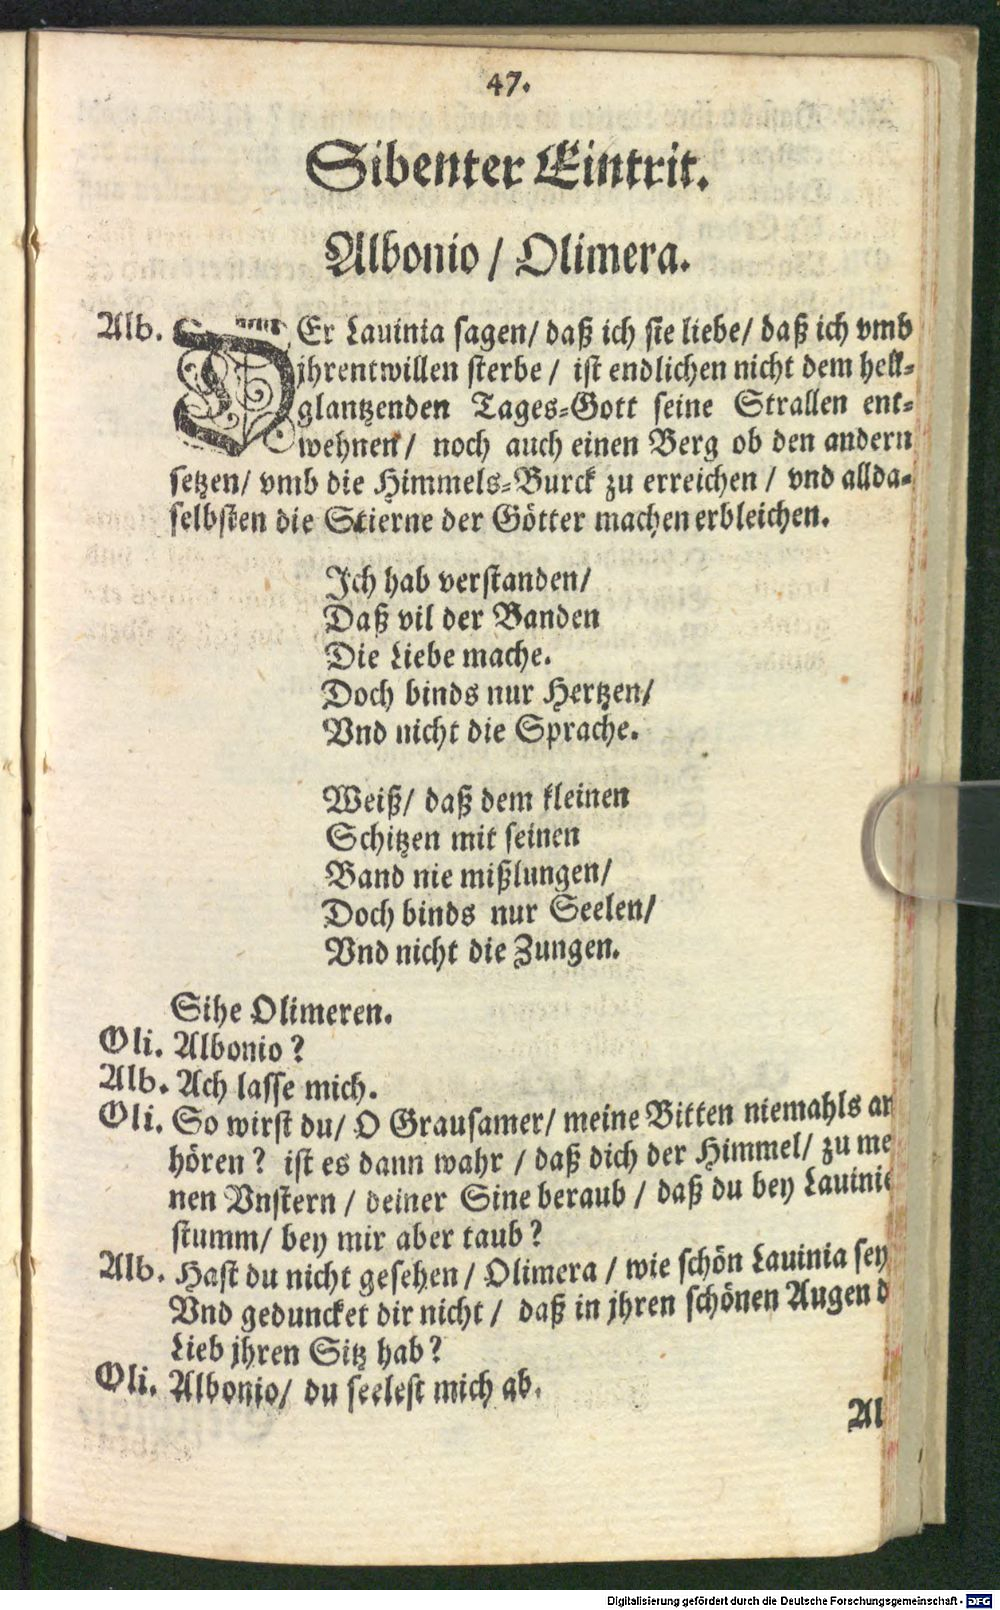 47.
Sibenter Eintrit.
Albonio / Olimera.
Alb. DEr Lauinia sagen/ daß ich sie liebe/ daß ich vmb
jhrentwillen sterbe / ist endlichen nicht dem hell-
glantzenden Tages-Gott seine Strallen ent-
wehnen / noch auch einen Berg ob den andern
setzen/ vmb die Himmels-Burck zu erreichen / vnd allda-
selbsten die Stierne der Götter machen erbleichen.
Ich hab verstanden/
Daß vil der Banden
Die Liebe mache.
Doch binds nur Hertzen/
Vnd nicht die Sprache.
Weiß/ daß dem kleinen
Schitzen mit seinen
Band nie mißlungen/
Doch binds nur Seelen/
Vnd nicht die Zungen.
Sihe Olimeren.
Oli. Albonio ?
Alb. Ach lasse mich.
Oli. So wirst du/ O Grausamer/ meine Bitten niemahls an
hören ? ist es dann wahr / daß dich der Himmel/ zu me
nen Vnstern / deiner Sine beraub / daß du bey Lauinie
stumm/ bey mir aber taub ?
Alb. Hast du nicht gesehen / Olimera / wie schön Lauinia sey
Vnd geduncket dir nicht / daß in jhren schönen Augen d
Lieb jhren Sitz hab ?
Oli. Albonio/ du seelest mich ab.
Al
Digitalisierung gefördert durch die Deutsche Forschungsgemeinschaft - DFG